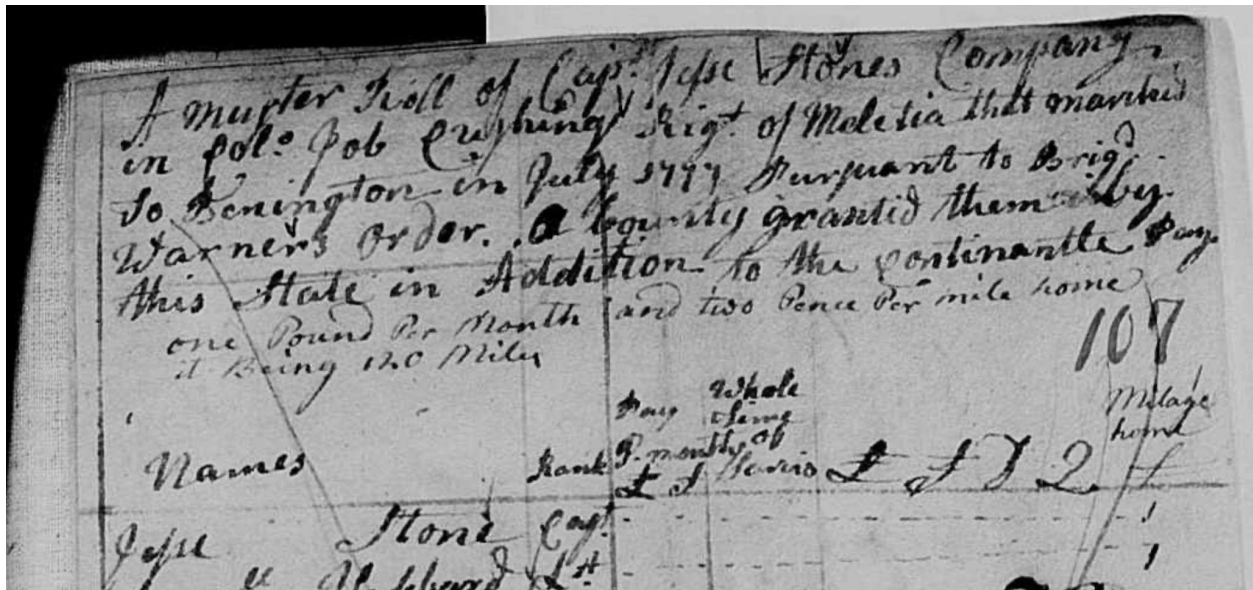 A Muster Roll of Capt. Jesse Stones Company
in Colo. Job Cushing Rigt. of Meletia that marchid
to Benington in July 1777 Purpuant to Brigd.
Warners order. A bounty grantid them by
this State in Addition to the Continantle Pay.
one Pound Per Month and two Pence Per mile home
it Being 120 Miles
107
Names
Rank
Pay
P. month
£ S
Whole
time
of
Servis
£ S D Q
Milage
home
Jesse Stone Capt.
Hubbard Lt